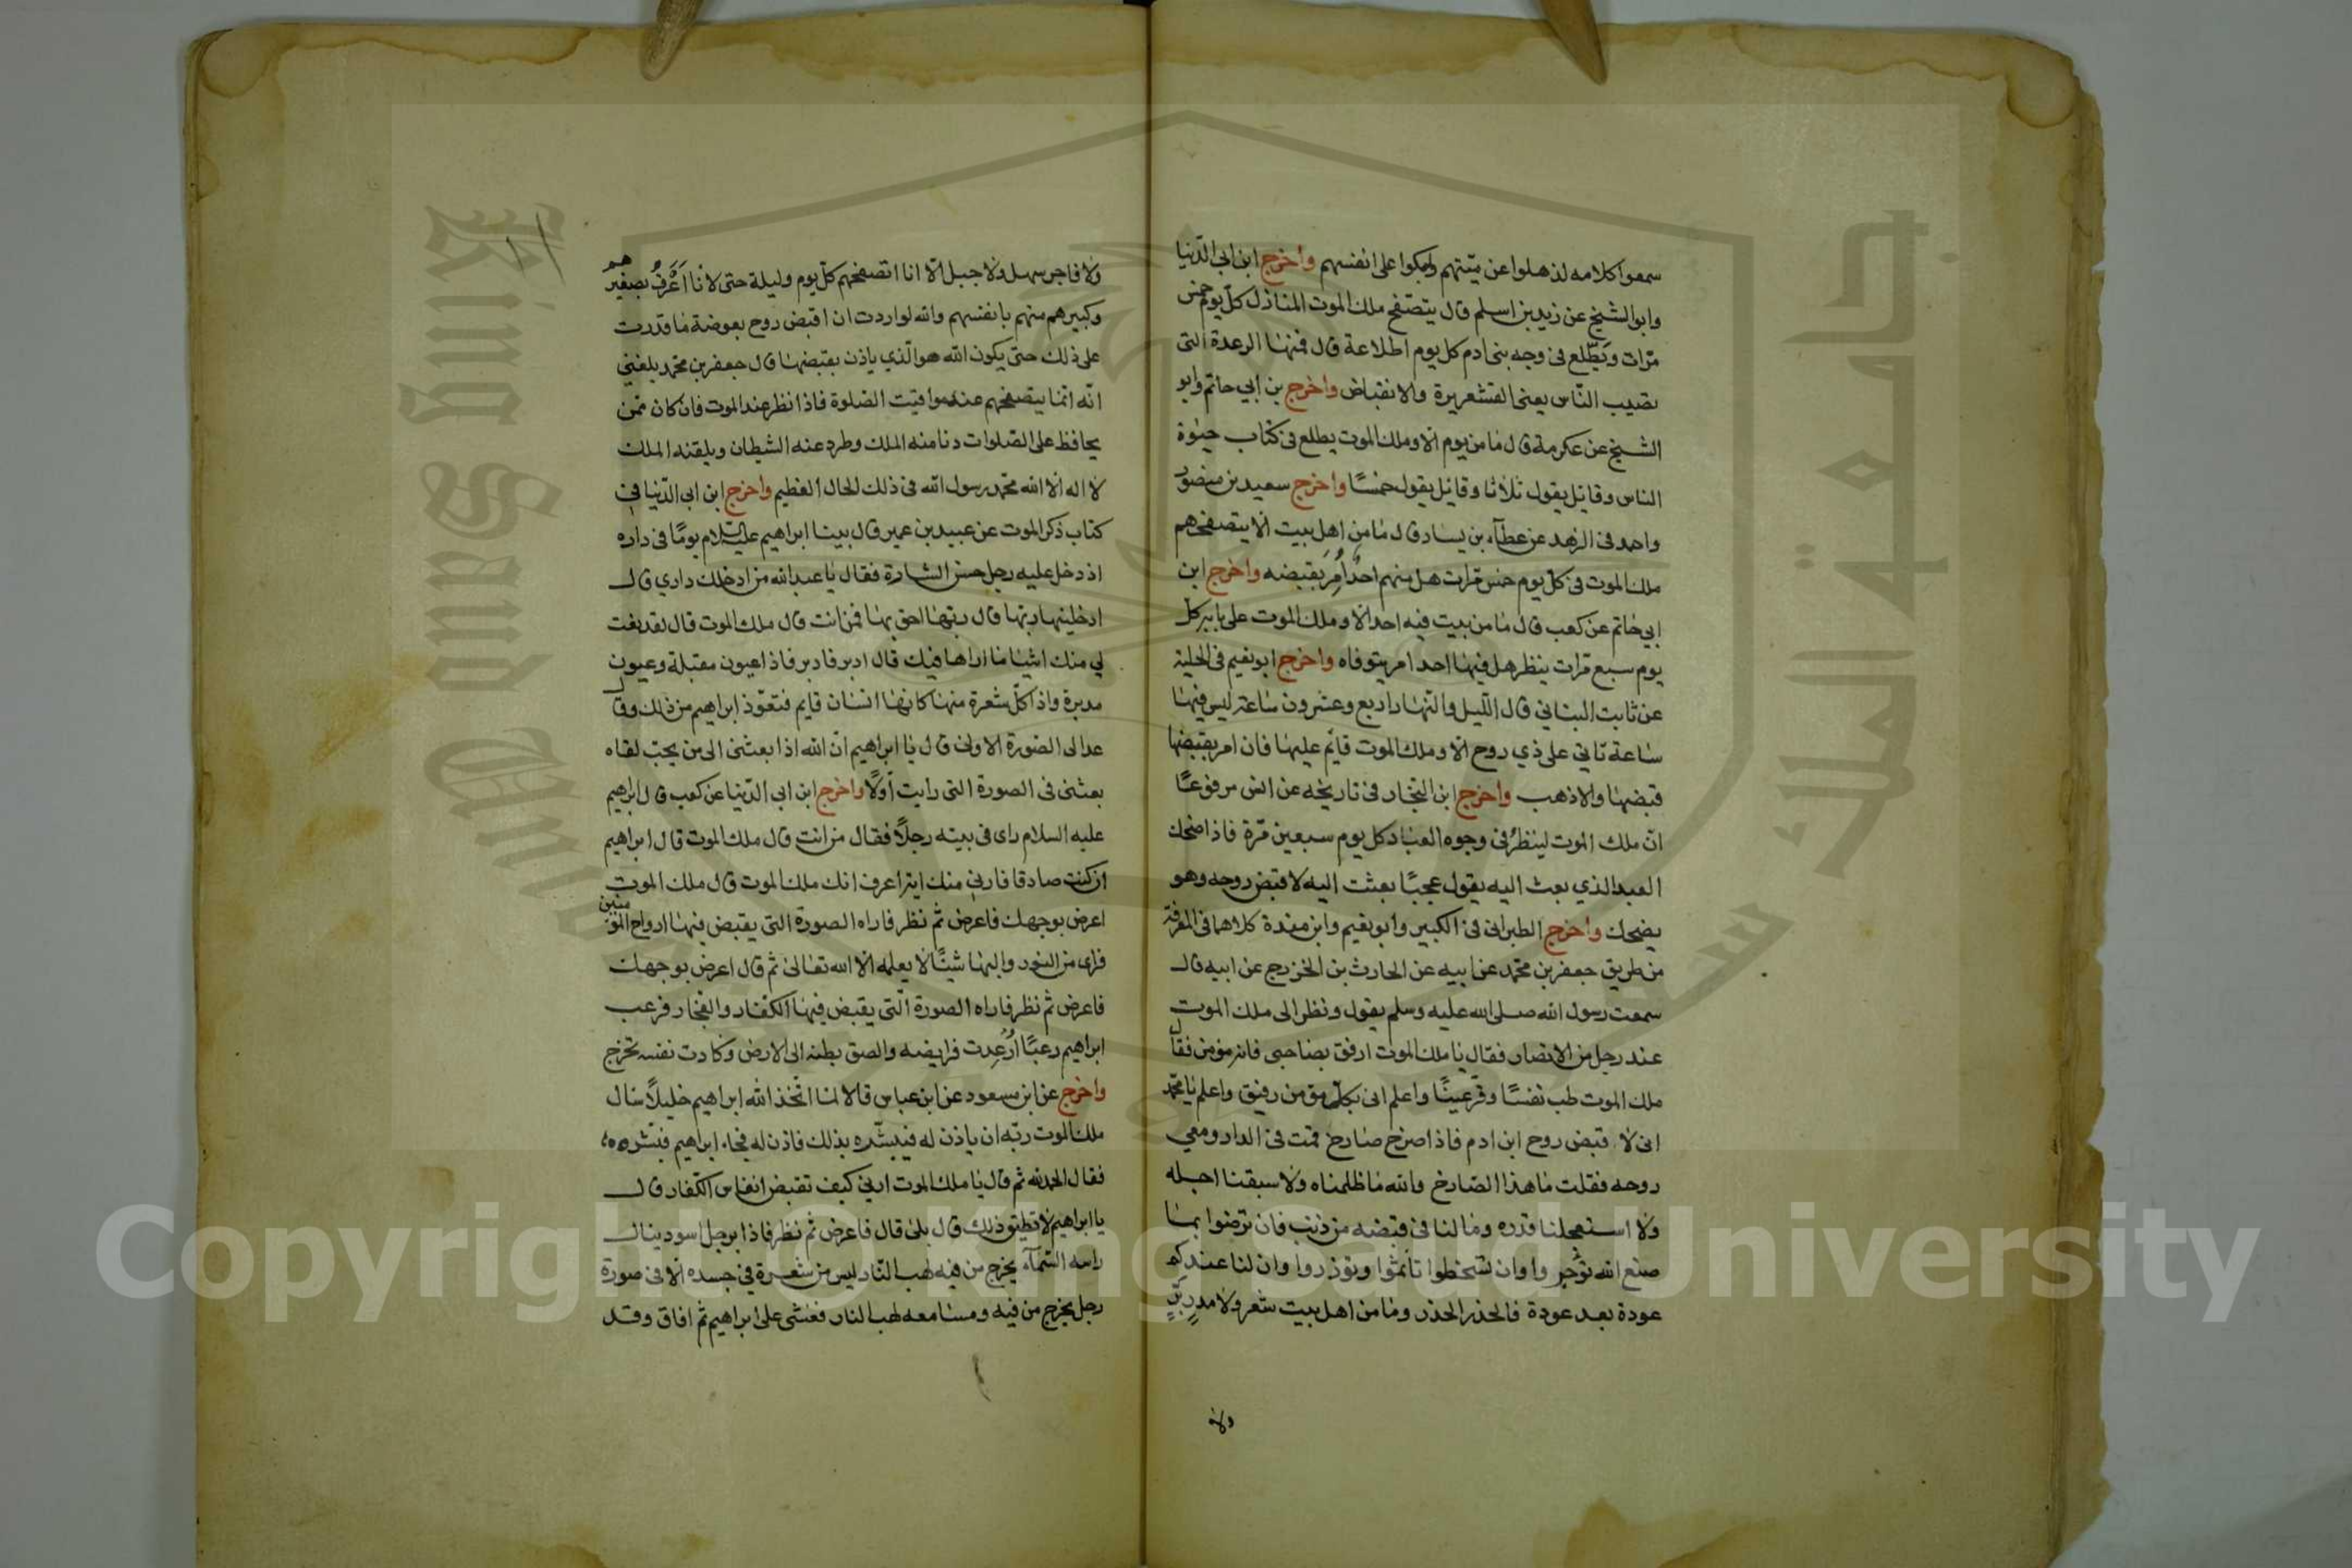 سمعوا كلامه لذهلوا عن ميتهم ولبكوا على انفسهم واخرج ابن ابي الدّنيا
وابو الشيخ عن زيد بن اسلم قال يتصفح ملك الموت المنازل كلّ يوم خمس
مرّات ويطّلع فى وجه بنى ادم كل يوم اطلاعة قال فمنها الرعدة التى
تصيب النّاس يعنى القشعريرة والانقباض واخرج بن ابي حاتم وابو
الشيخ عن عكرمة قال ما من يوم الا وملك الموت يطلع فى كتاب حيوة
الناس وقائل يقول ثلاثا وقائل يقول خمسًا واخرج سعيد بن منصور
واحمد فى الزهد عن عطآء بن يسار قال ما من اهل بيت الا يتصفحهم
ملك الموت فى كلّ يوم خمس مرّات هل منهم احدٌ اُمِرَ بقبضه واخرج ابن
ابي حاتم عن كعب قال ما من بيت فيه احد الا وملك الموت على بابه كلّ
يوم سبع مرات ينظر هل فيها احد امر يتوفاه واخرج ابو نعيم فى الحلية
عن ثابت البناني قال اللّيل والنّهار اربع وعشرون ساعة ليس فيها
ساعة تاتي على ذي روح الا وملك الموت قايم عليها فان امر بقبضها
قبضها والا ذهب واخرج ابن النجّار فى تاريخه عن انس مرفوعًا
انّ ملك الموت لينظرُ فى وجوه العباد كل يوم سبعين مرّة فاذا ضحك
العبد الذي بعث اليه يقول عجبًا بعثت اليه لاقبض روحه وهو
يضحك واخرج الطبرانى فى الكبير وابو نعيم وابن مندة كلاهما فى المعرفة
من طريق جعفر بن محمّد عن ابيه عن الحارث بن الخزرج عن ابيه قال
سمعت رسول الله صلى الله عليه وسلم يقول ونظر الى ملك الموت
عند رجل من الانصار فقال يا ملك الموت ارفق بصاحبى فانه مؤمن فقال
ملك الموت طب نفسًا وقرّ عينًا واعلم انى بكلّ مؤمن رفيق واعلم يا محمّد
انى لا قبض روح ابن ادم فاذا صرخ صارخ قمت فى الدار ومعي
روحه فقلت ما هذا الصّارخ والله ما ظلمناه ولا سبقنا اجله
ولا استعجلنا قدره وما لنا فى قبضه من ذنب فان ترضوا بما
صنع الله تؤجروا وان تسخطوا تأثموا وتؤزروا وان لنا عندكم
عودة بعد عودة فالحذر الحذر وما من اهل بيت شعر ولا مدرٍ برّ
ولا
ولا فاجر سهل ولا جبل الّا انا اتصفحهم كلّ يوم وليلة حتى لانا اَعْرَفُ بصغيرهم
وكبيرهم منهم بانفسهم والله لو اردت ان اقبض روح بعوضة ما قدرت
على ذلك حتى يكون الله هو الّذي ياذن بقبضها قال جعفر بن محمّد بلغنى
انّه انما يتصفحهم عند مواقيت الصّلوة فاذا نظر عند الموت فان كان ممّن
يحافظ على الصّلوات دنا منه الملك وطرد عنه الشيطان ويلقنه الملك
لا اله الا الله محمّد رسول الله فى ذلك الحال العظيم واخرج ابن ابى الدّنيا فى
كتاب ذكر الموت عن عبيد بن عمير قال بينا ابراهيم عليه السّلام يومًا فى داره
اذ دخل عليه رجل حسن الشارة فقال يا عبد الله من ادخلك داري قال
ادخلينها ربّها قال ربّها احق بها فمن انت قال ملك الموت قال لقد نعت
لي منك اشيا ما اراها فيك قال ادبر فادبر فاذا عيون مقبلة وعيون
مدبرة واذا كلّ شعرة منها كانها انسان قايم فتعوّذ ابراهيم من ذلك وقال
عد الى الصّورة الاولى قال يا ابراهيم انّ الله اذا بعثنى الى من يحبّ لقاه
بعثنى فى الصورة التى رايت اوّلًا واخرج ابن ابى الدّنيا عن كعب قال ابراهيم
عليه السلام راى فى بيته رجلًا فقال من انت قال ملك الموت قال ابراهيم
ان كنت صادقا فارني منك اية اعرف انك ملك الموت قال ملك الموت
اعرض بوجهك فاعرض ثم نظر فاراه الصورة التى يقبض فيها ارواح المؤمنين
فراى من النور والبها شيئًا لا يعلمه الا الله تعالى ثم قال اعرض بوجهك
فاعرض ثم نظر فاراه الصورة الّتى يقبض فيها الكفّار والفجّار فرعب
ابراهيم رعبًا اُرْعِدت فرايصه والصق بطنه الى الارض وكادت نفسه تخرج
واخرج عن ابن مسعود عن ابن عباس قالا لما اتّخذ الله ابراهيم خليلًا سال
ملك الموت ربّه ان ياذن له فيبشّره بذلك فاذن له فجاء ابراهيم فبشّره
فقال الحمد لله ثم قال يا ملك الموت ارني كيف تقبض انفاس الكفّار قال
يا ابراهيم لا تطيق ذلك قال بلى قال فاعرض ثم نظر فاذا برجل اسود ينال
راسه السّمآء يخرج من فيه لهب النّار ليس من شعرة في جسده الا فى صورة
رجل يخرج من فيه ومسامعه لهب النار فغشى على ابراهيم ثم افاق وقد
Copyright © King Saud University
King Saud University
جامعة الملك سعود